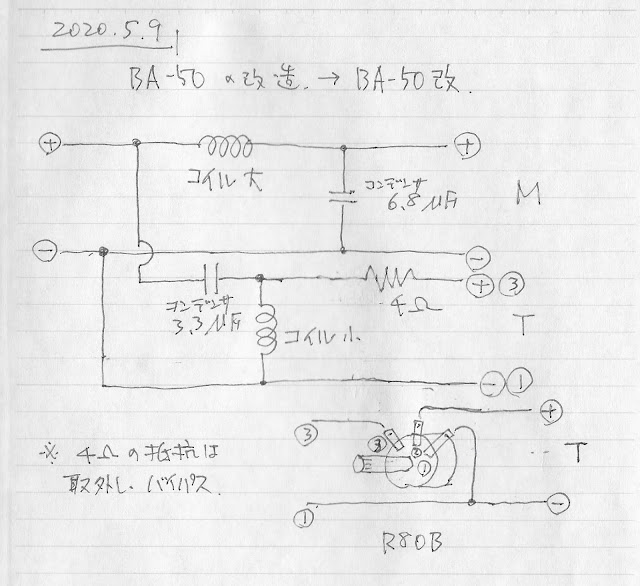 2020.5.9
BA-50の改造. → BA-50改.
+
+
コイル大
コンデンサ
6.8μF
M
−
−
+ ③
コンデンサ
3.3μF
4Ω
T
コイル小
− ①
③
+
③
②
①
T
※ 4Ωの抵抗は
取外し、バイパス.
①
−
R80B